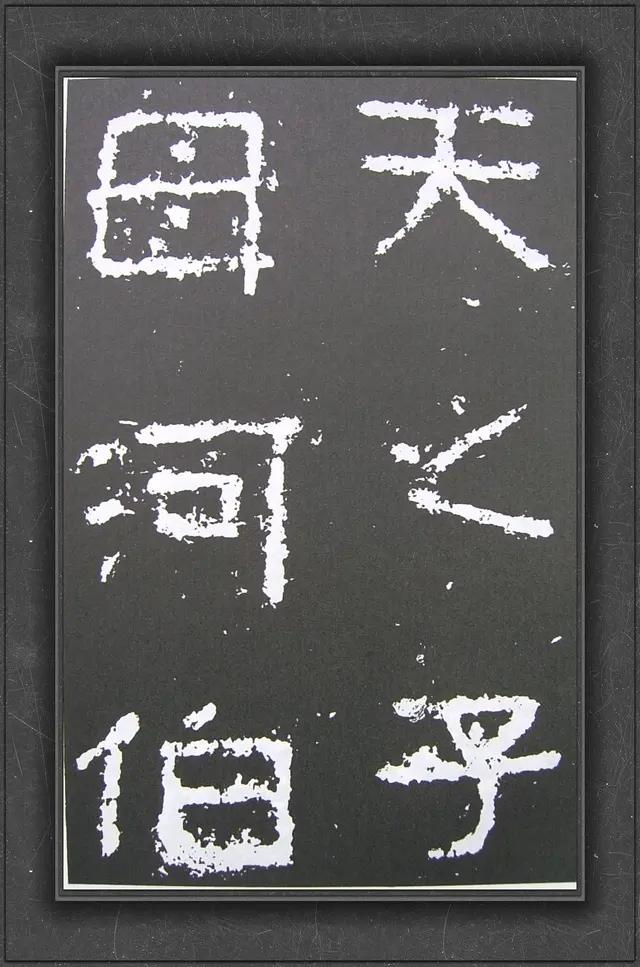 天之子
母河伯